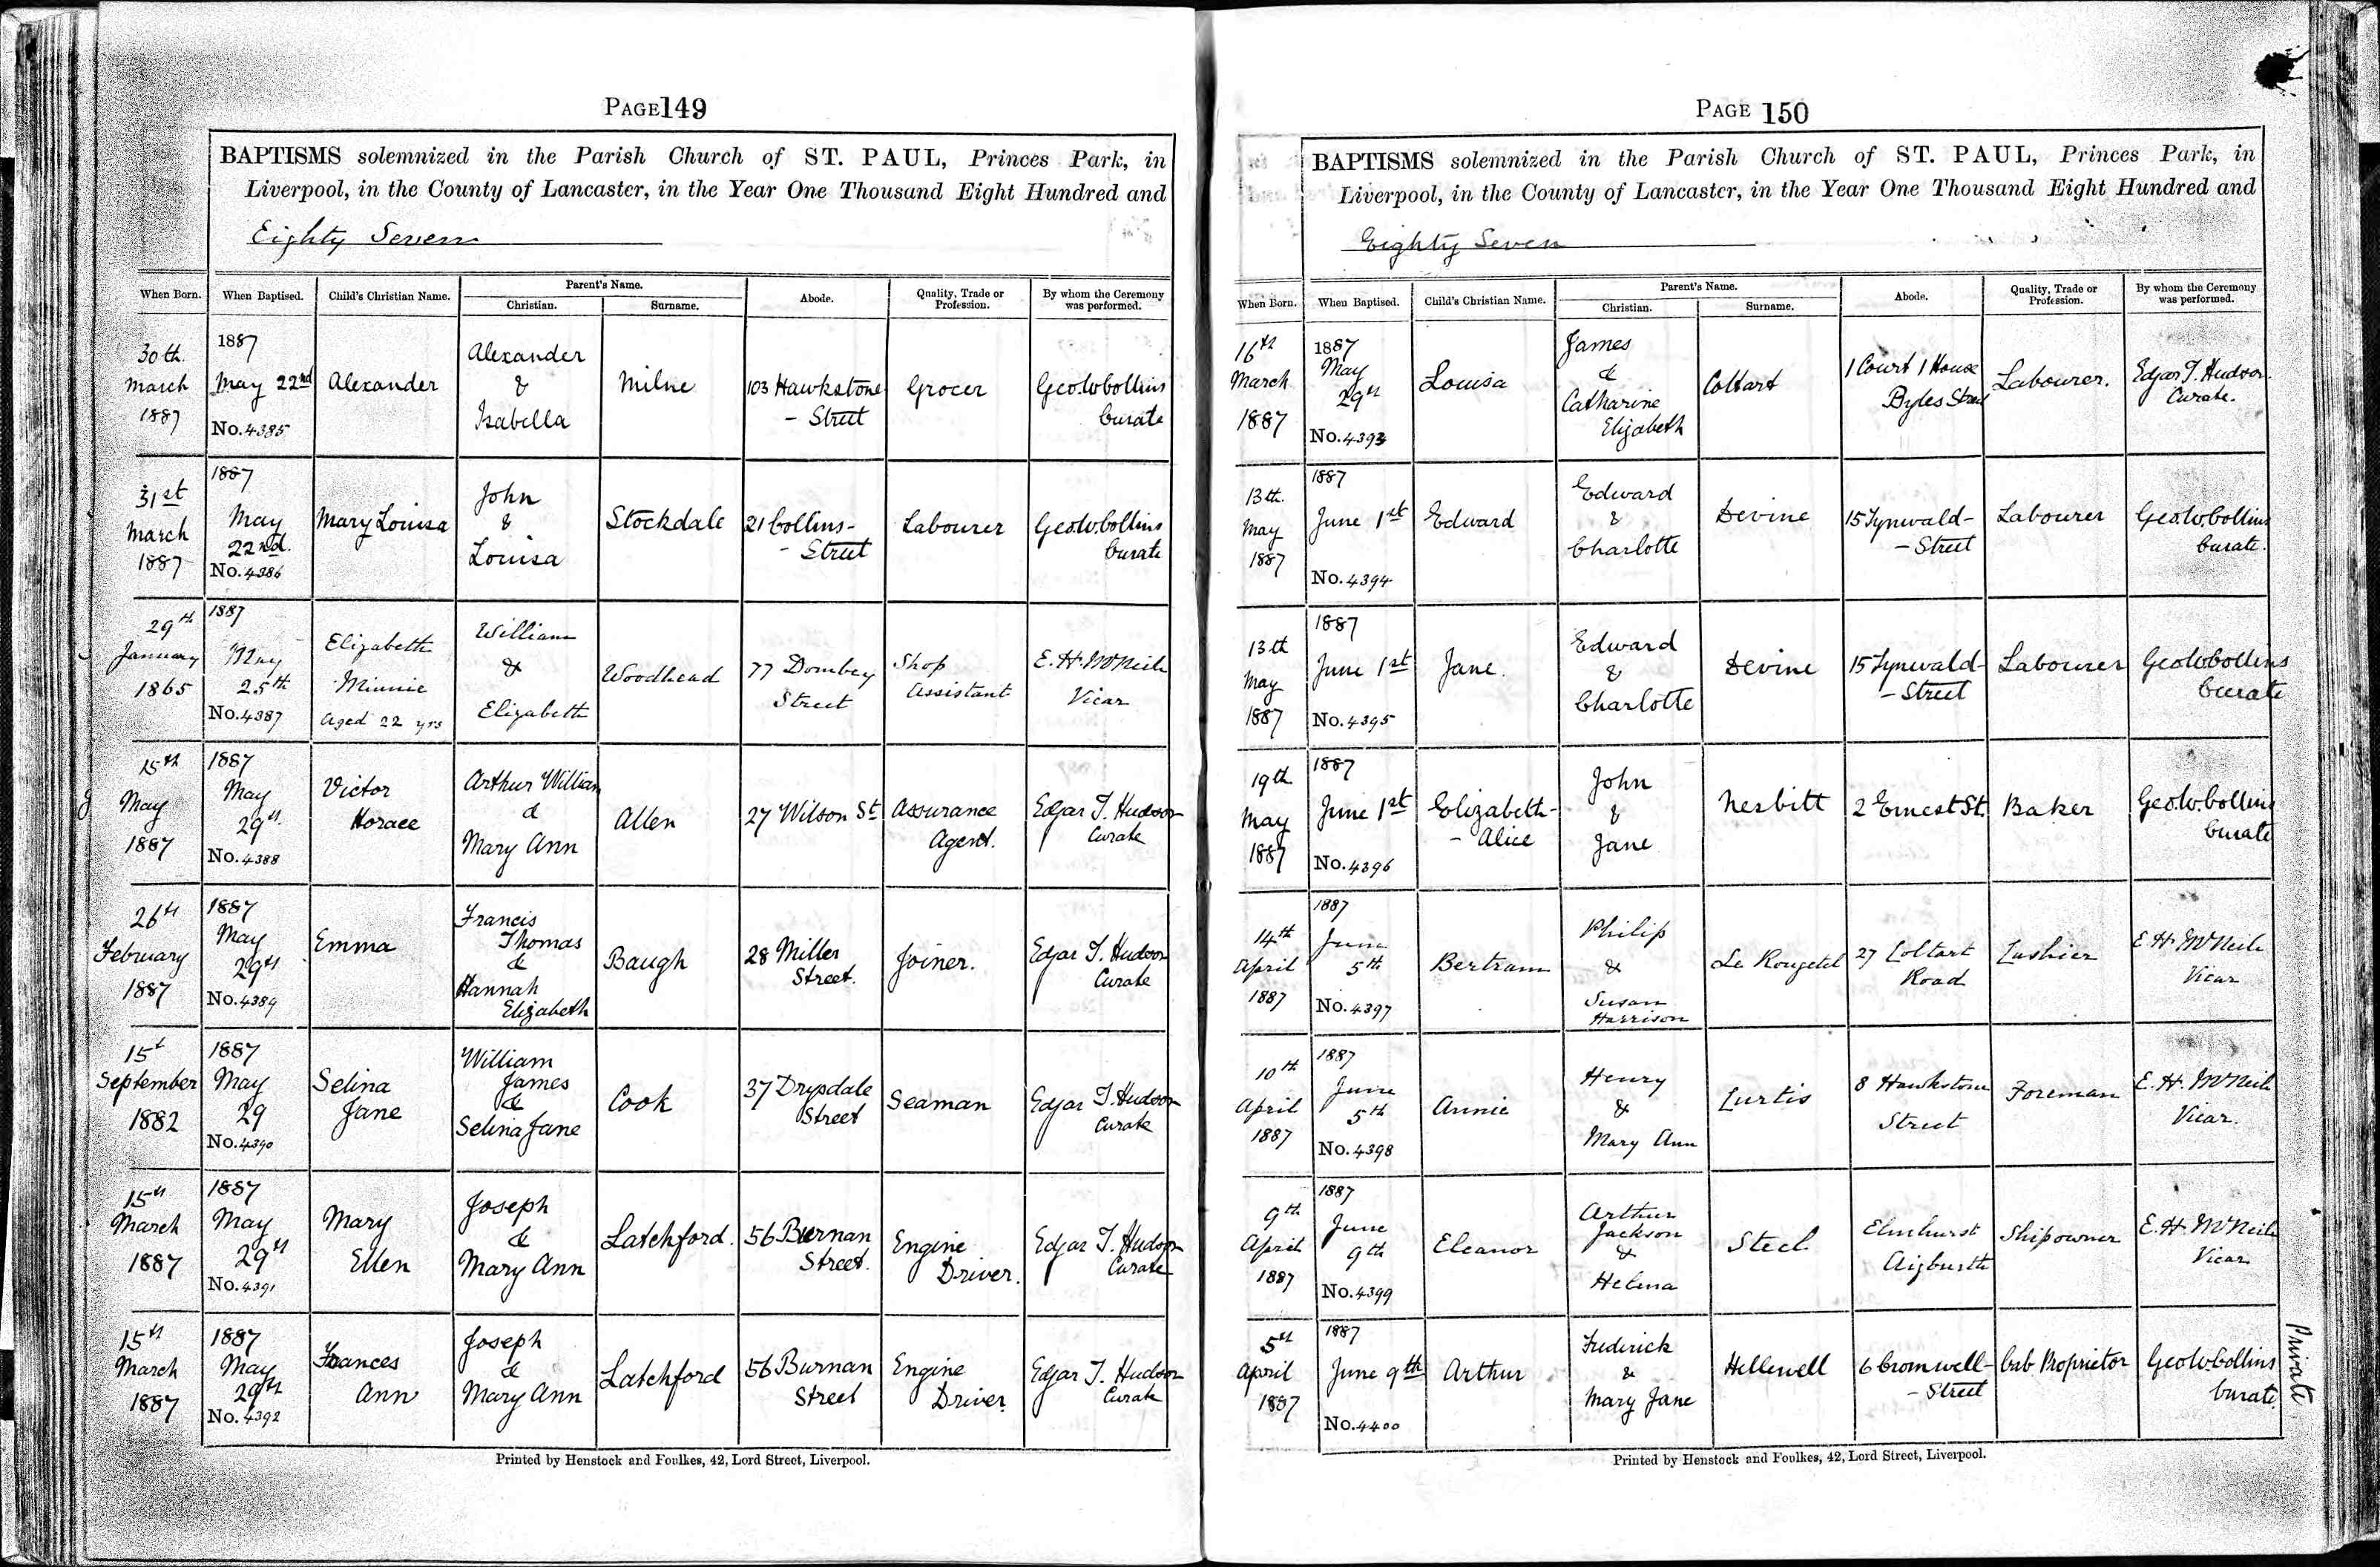 PAGE 149
BAPTISMS solemnized in the Parish Church of ST. PAUL, Princes Park, in
Liverpool, in the County of Lancaster, in the Year One Thousand Eight Hundred and
Eighty Seven
When Born. When Baptised. Child's Christian Name. Parent's Name. Christian. Surname. Abode. Quality, Trade or Profession. By whom the Ceremony was performed.
30th March 1887 1887 May 22nd No. 4385 Alexander Alexander & Isabella Milne 103 Hawkstone - Street Grocer Geo. W. Collins Curate
31st March 1887 1887 May 22nd. No. 4386 Mary Louisa John & Louisa Stockdale 21 Collins - - Street Labourer Geo. W. Collins Curate
29th January 1865 1887 May 25th No. 4387 Elizabeth Minnie Aged 22 yrs William & Elizabeth Woodhead 77 Dombey Street Shop Assistant E. H. McNeile Vicar
15th May 1887 1887 May 29th No. 4388 Victor Horace Arthur William & Mary Ann Allen 27 Wilson St. Assurance Agent. Edgar T. Hudson Curate
26th February 1887 1887 May 29th No. 4389 Emma Francis Thomas & Hannah Elizabeth Baugh 28 Miller Street. Joiner. Edgar T. Hudson Curate
15t September 1882 1887 May 29 No. 4390 Selina Jane William James & Selina Jane Cook 37 Drysdale Street Seaman Edgar T. Hudson Curate
15th March 1887 1887 May 29th No. 4391 Mary Ellen Joseph & Mary Ann Latchford. 56 Burnan Street. Engine Driver. Edgar T. Hudson Curate
15th March 1887 1887 May 29th No. 4392 Frances Ann Joseph & Mary Ann Latchford 56 Burnan Street Engine Driver Edgar T. Hudson Curate
Printed by Henstock and Foulkes, 42, Lord Street, Liverpool.
PAGE 150
BAPTISMS solemnized in the Parish Church of ST. PAUL, Princes Park, in
Liverpool, in the County of Lancaster, in the Year One Thousand Eight Hundred and
Eighty Seven
When Born. When Baptised. Child's Christian Name. Parent's Name. Christian. Surname. Abode. Quality, Trade or Profession. By whom the Ceremony was performed.
16th March 1887 1887 May 29th No. 4393 Louisa James & Catharine Elizabeth Coltart 1 Court 1 House Byles Street Labourer. Edgar T. Hudson. Curate.
13th. May 1887 1887 June 1st No. 4394 Edward Edward & Charlotte Devine 15 Tynwald - - Street Labourer Geo. W. Collins Curate.
13th May 1887 1887 June 1st No. 4395 Jane. Edward & Charlotte Devine 15 Tynwald - - Street Labourer Geo. W. Collins Curate
19th May 1887 1887 June 1st No. 4396 Elizabeth - - Alice John & Jane Nesbitt 2 Ernest St. Baker Geo. W. Collins Curate
14th April 1887 1887 June 5th No. 4397 Bertram Philip & Susan Harrison Le Rougetel 27 Coltart Road Cashier E. H. McNeile Vicar
10th April 1887 1887 June 5th No. 4398 Annie Henry & Mary Ann Curtis 8 Hawkstone Street Foreman E. H. McNeile Vicar.
9th April 1887 1887 June 9th No. 4399 Eleanor Arthur Jackson & Helena Steel Elmhurst Aigburth Shipowner E. H. McNeile Vicar
5th April 1887 1887 June 9th No. 4400 Arthur Frederick & Mary Jane Hellewell 6 Cromwell - - Street Cab Proprietor Geo. W. Collins Curate
Private
Printed by Henstock and Foulkes, 42, Lord Street, Liverpool.